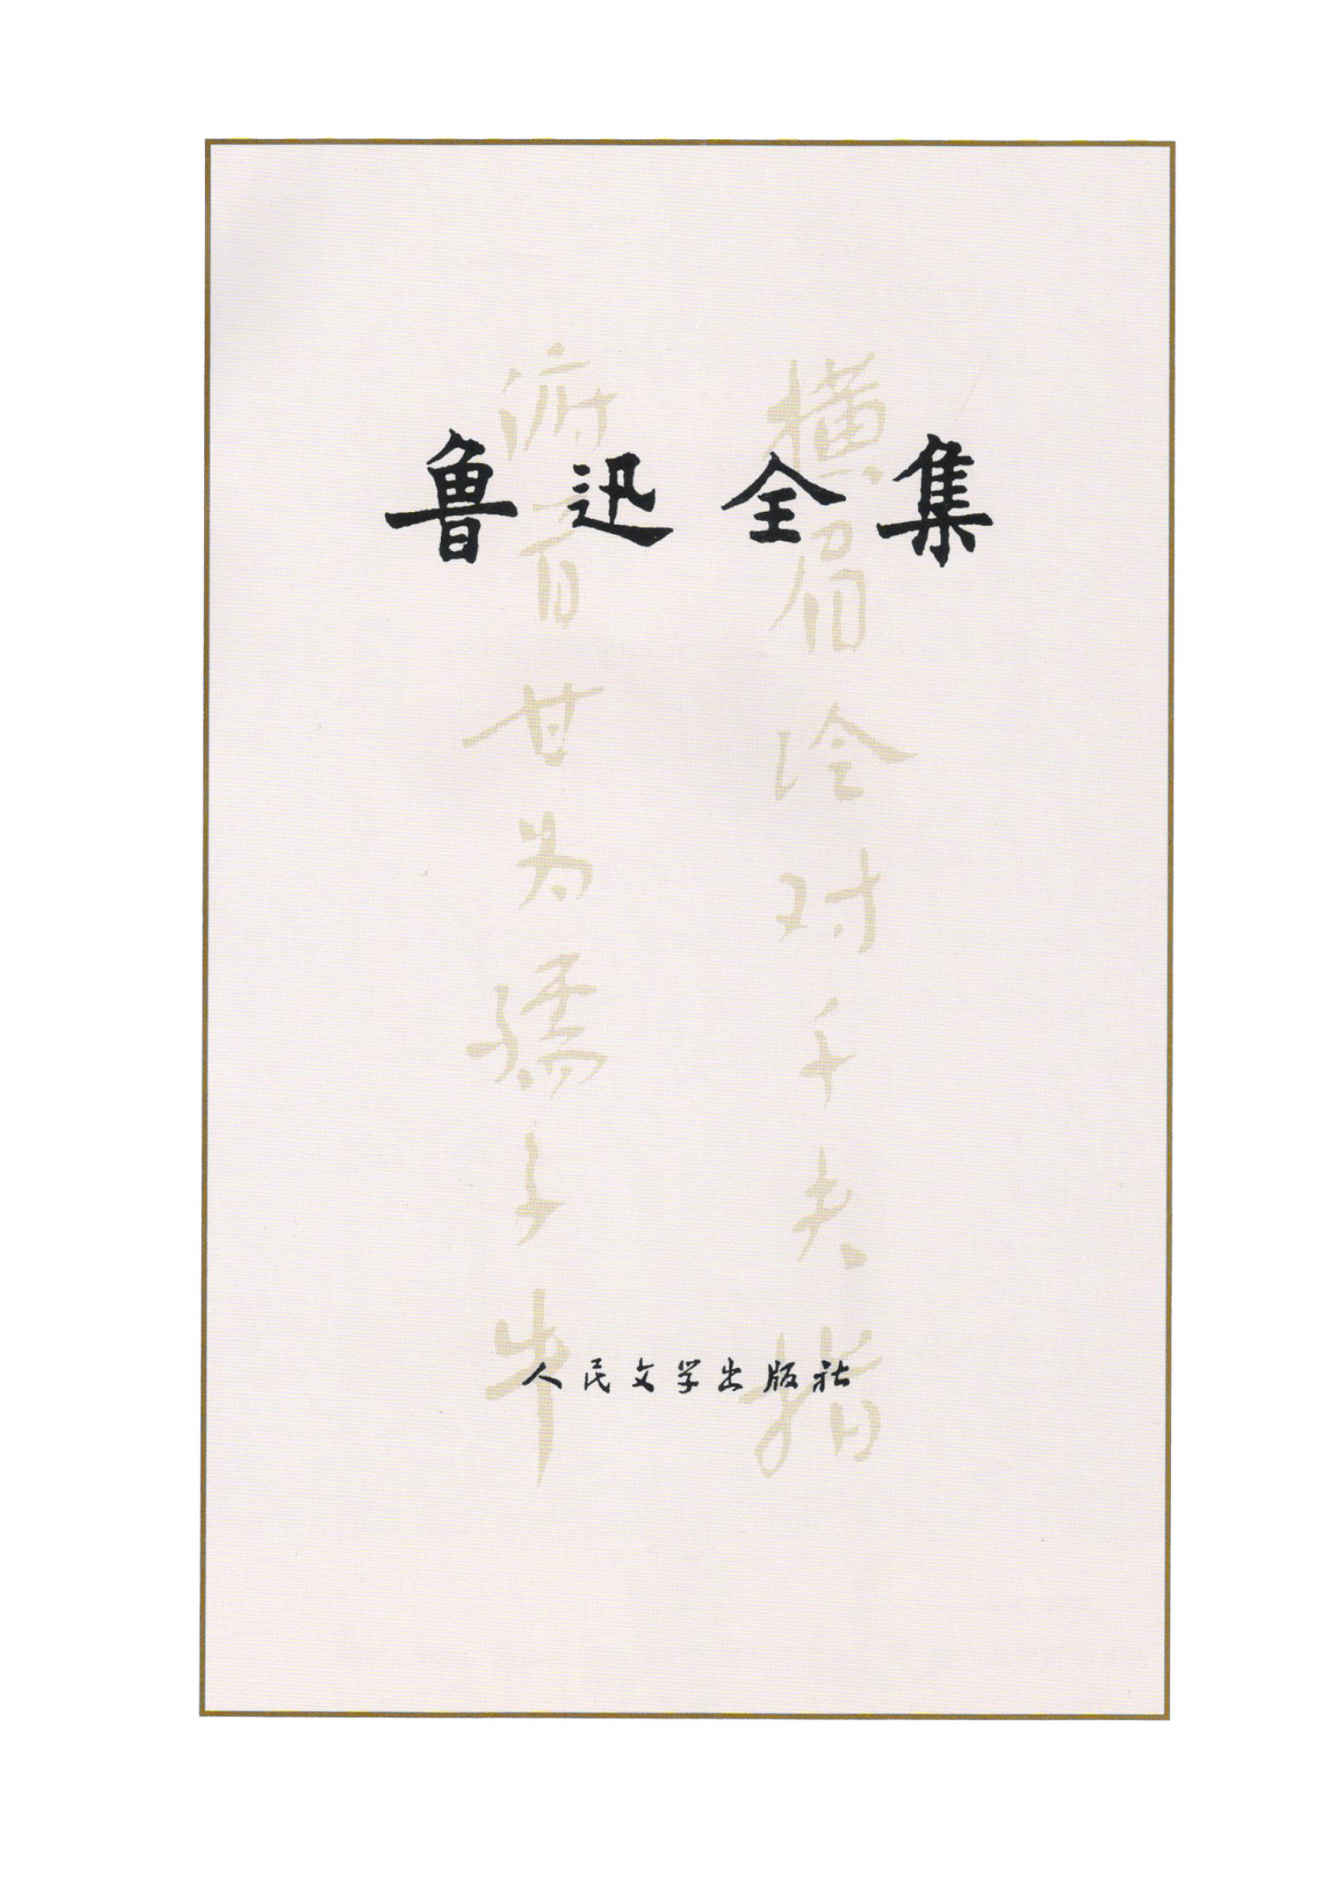 鲁迅全集
横眉冷对千夫指
俯首甘为孺子牛
人民文学出版社